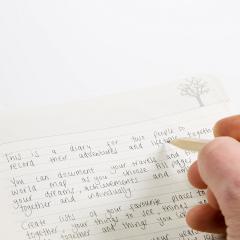 This is a diary for two people to
record their adventures and lifetime together
You can document your travels and
world map as you choose fill page
your dreams, achievements and
together and individually.
Create lists of your favourite places to
together, your things to see things
together and things you